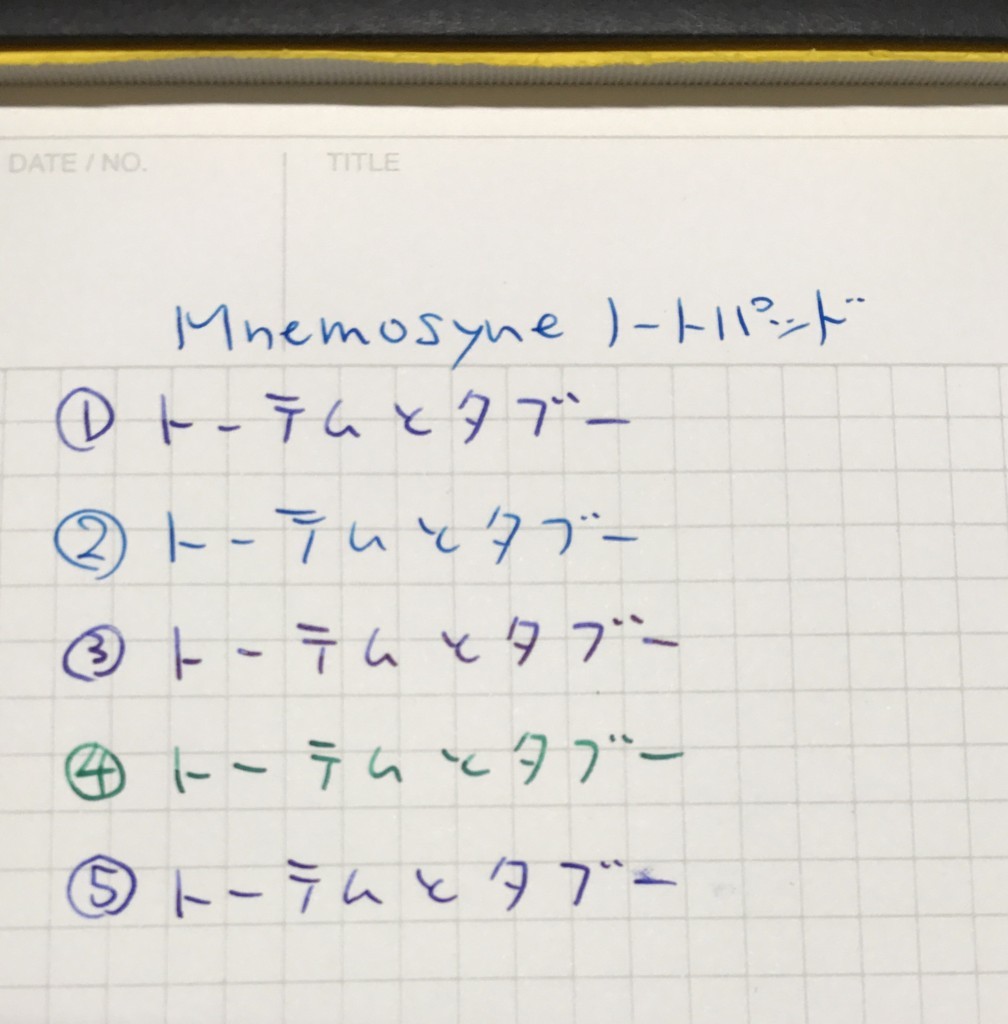 DATE / NO. TITLE
Mnemosyne ノートパッド
① トーテムとタブー
② トーテムとタブー
③ トーテムとタブー
④ トーテムとタブー
⑤ トーテムとタブー